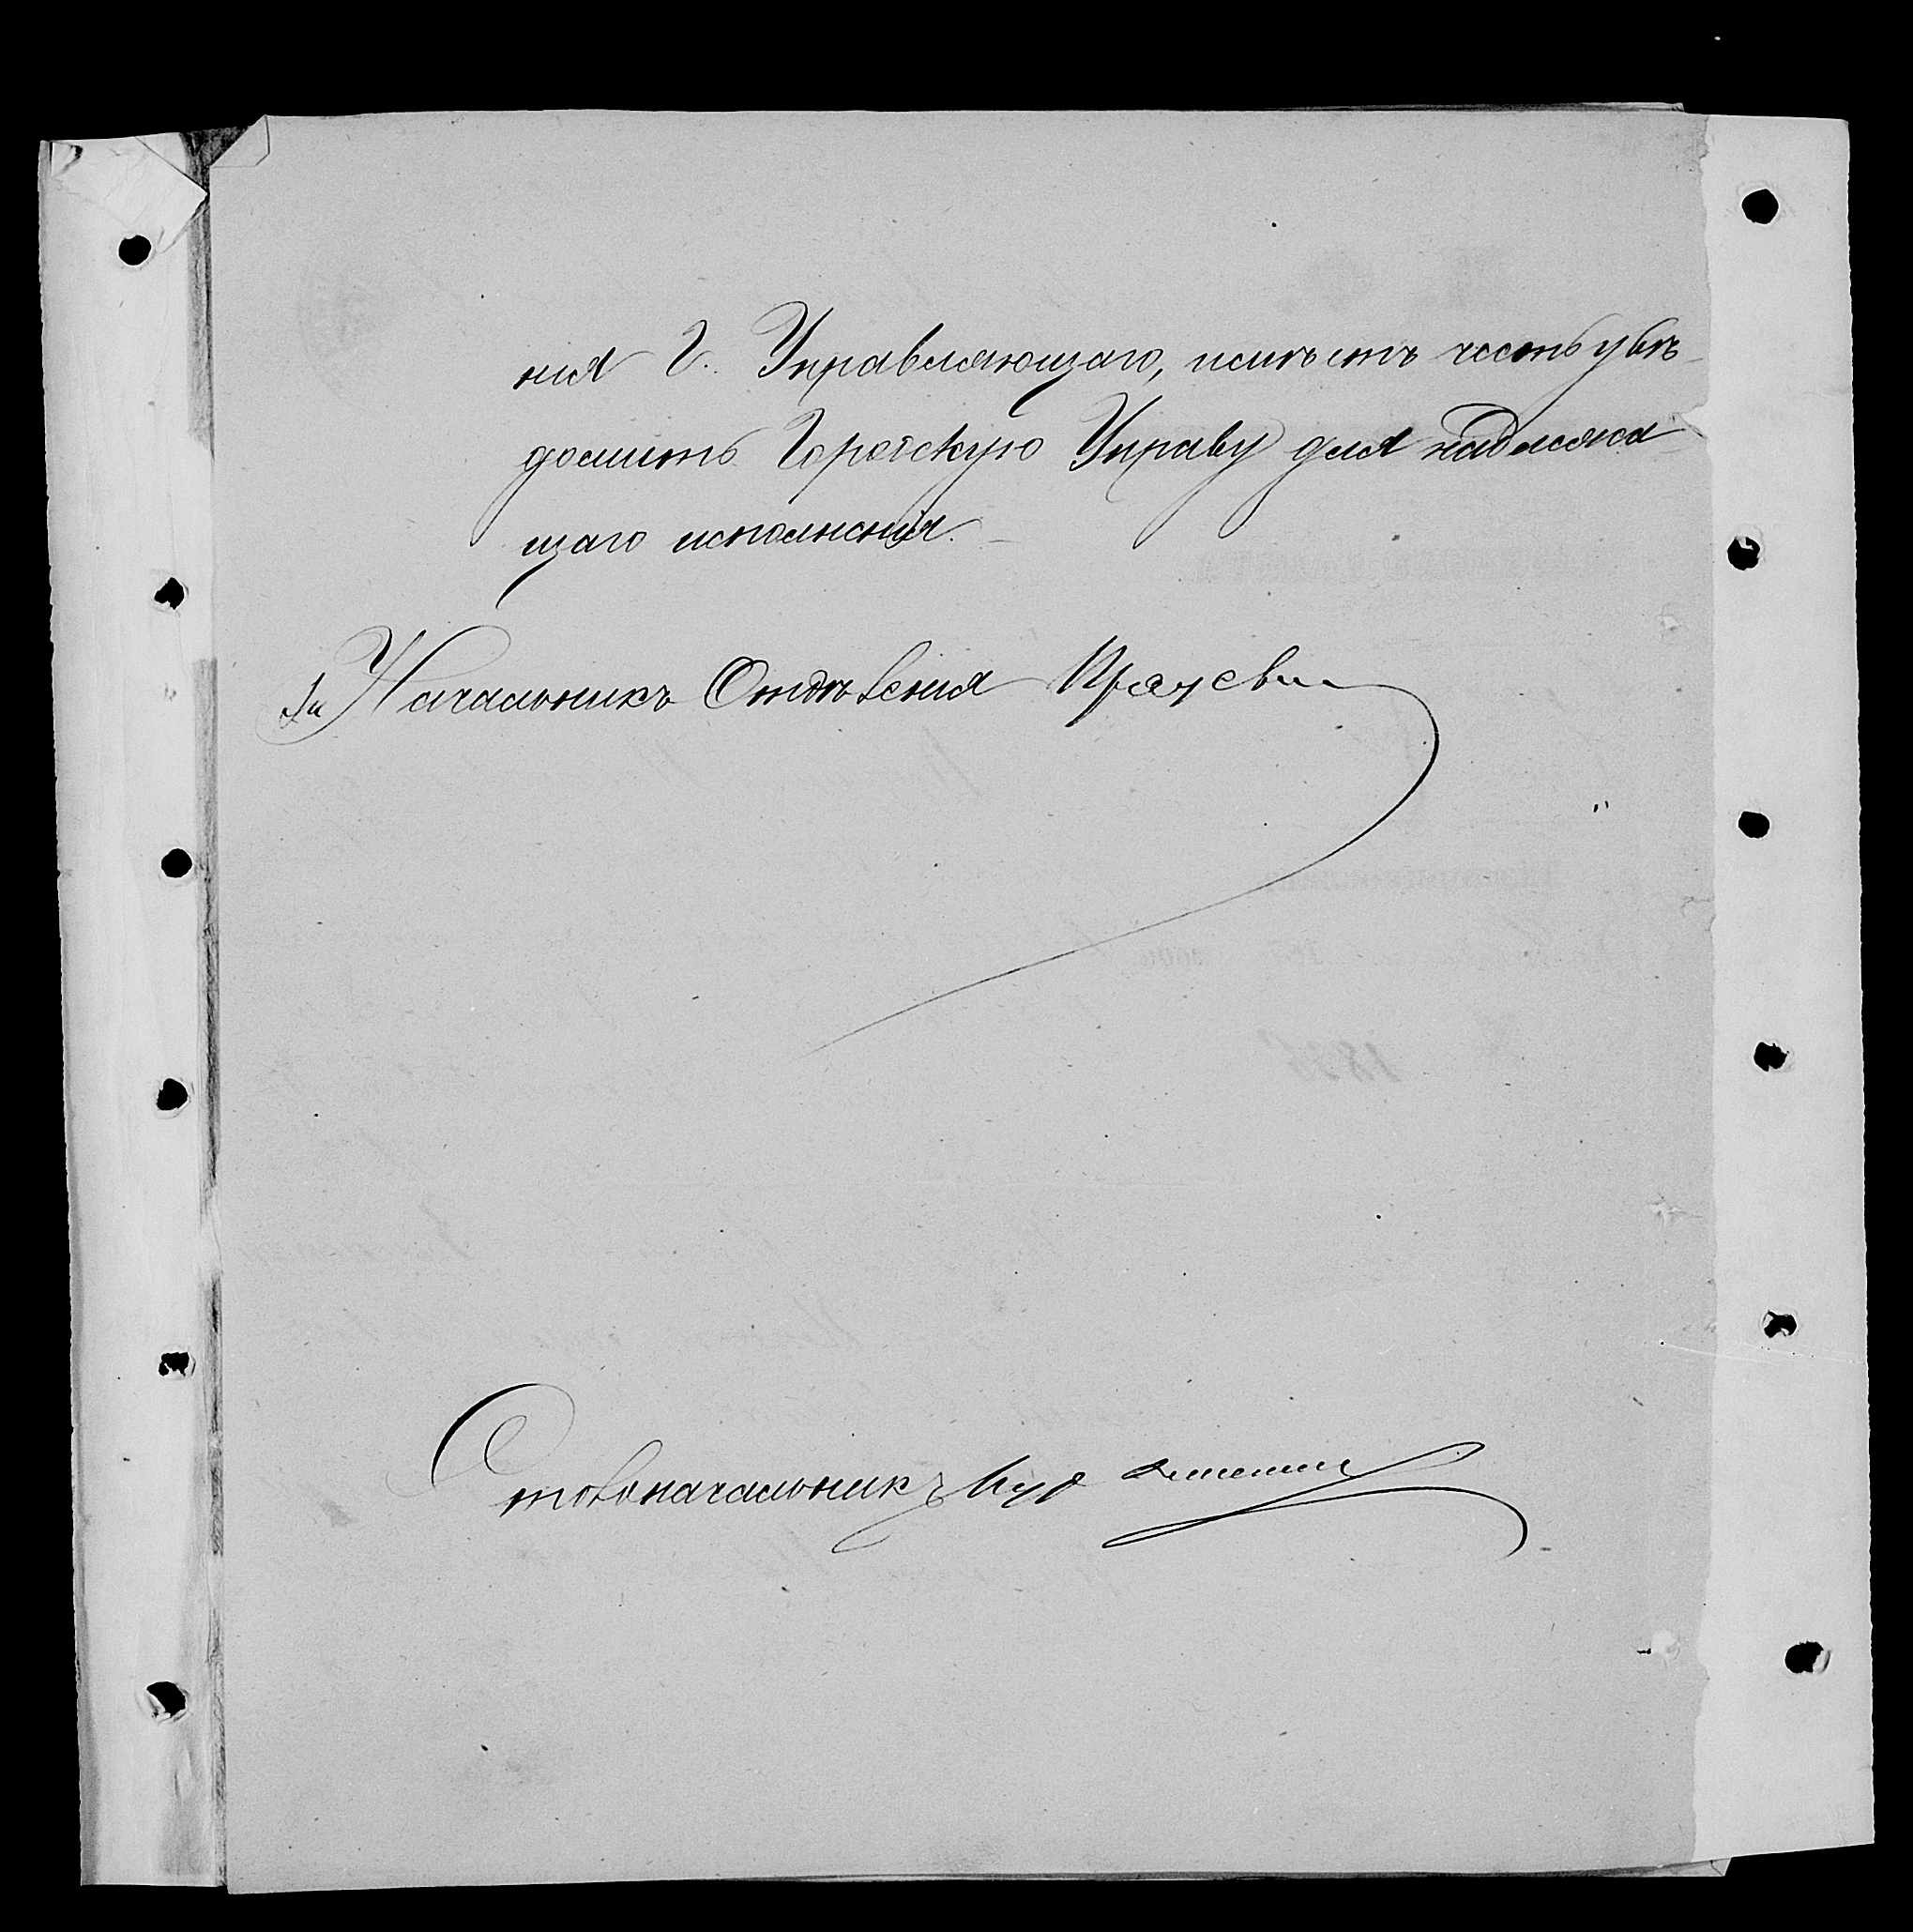 нія Г. Управляющаго, имѣетъ честь увѣ-
домить Городскую Управу для надлежа-
щаго исполненія.
За Начальникъ Отдѣленія
Столоначальникъ